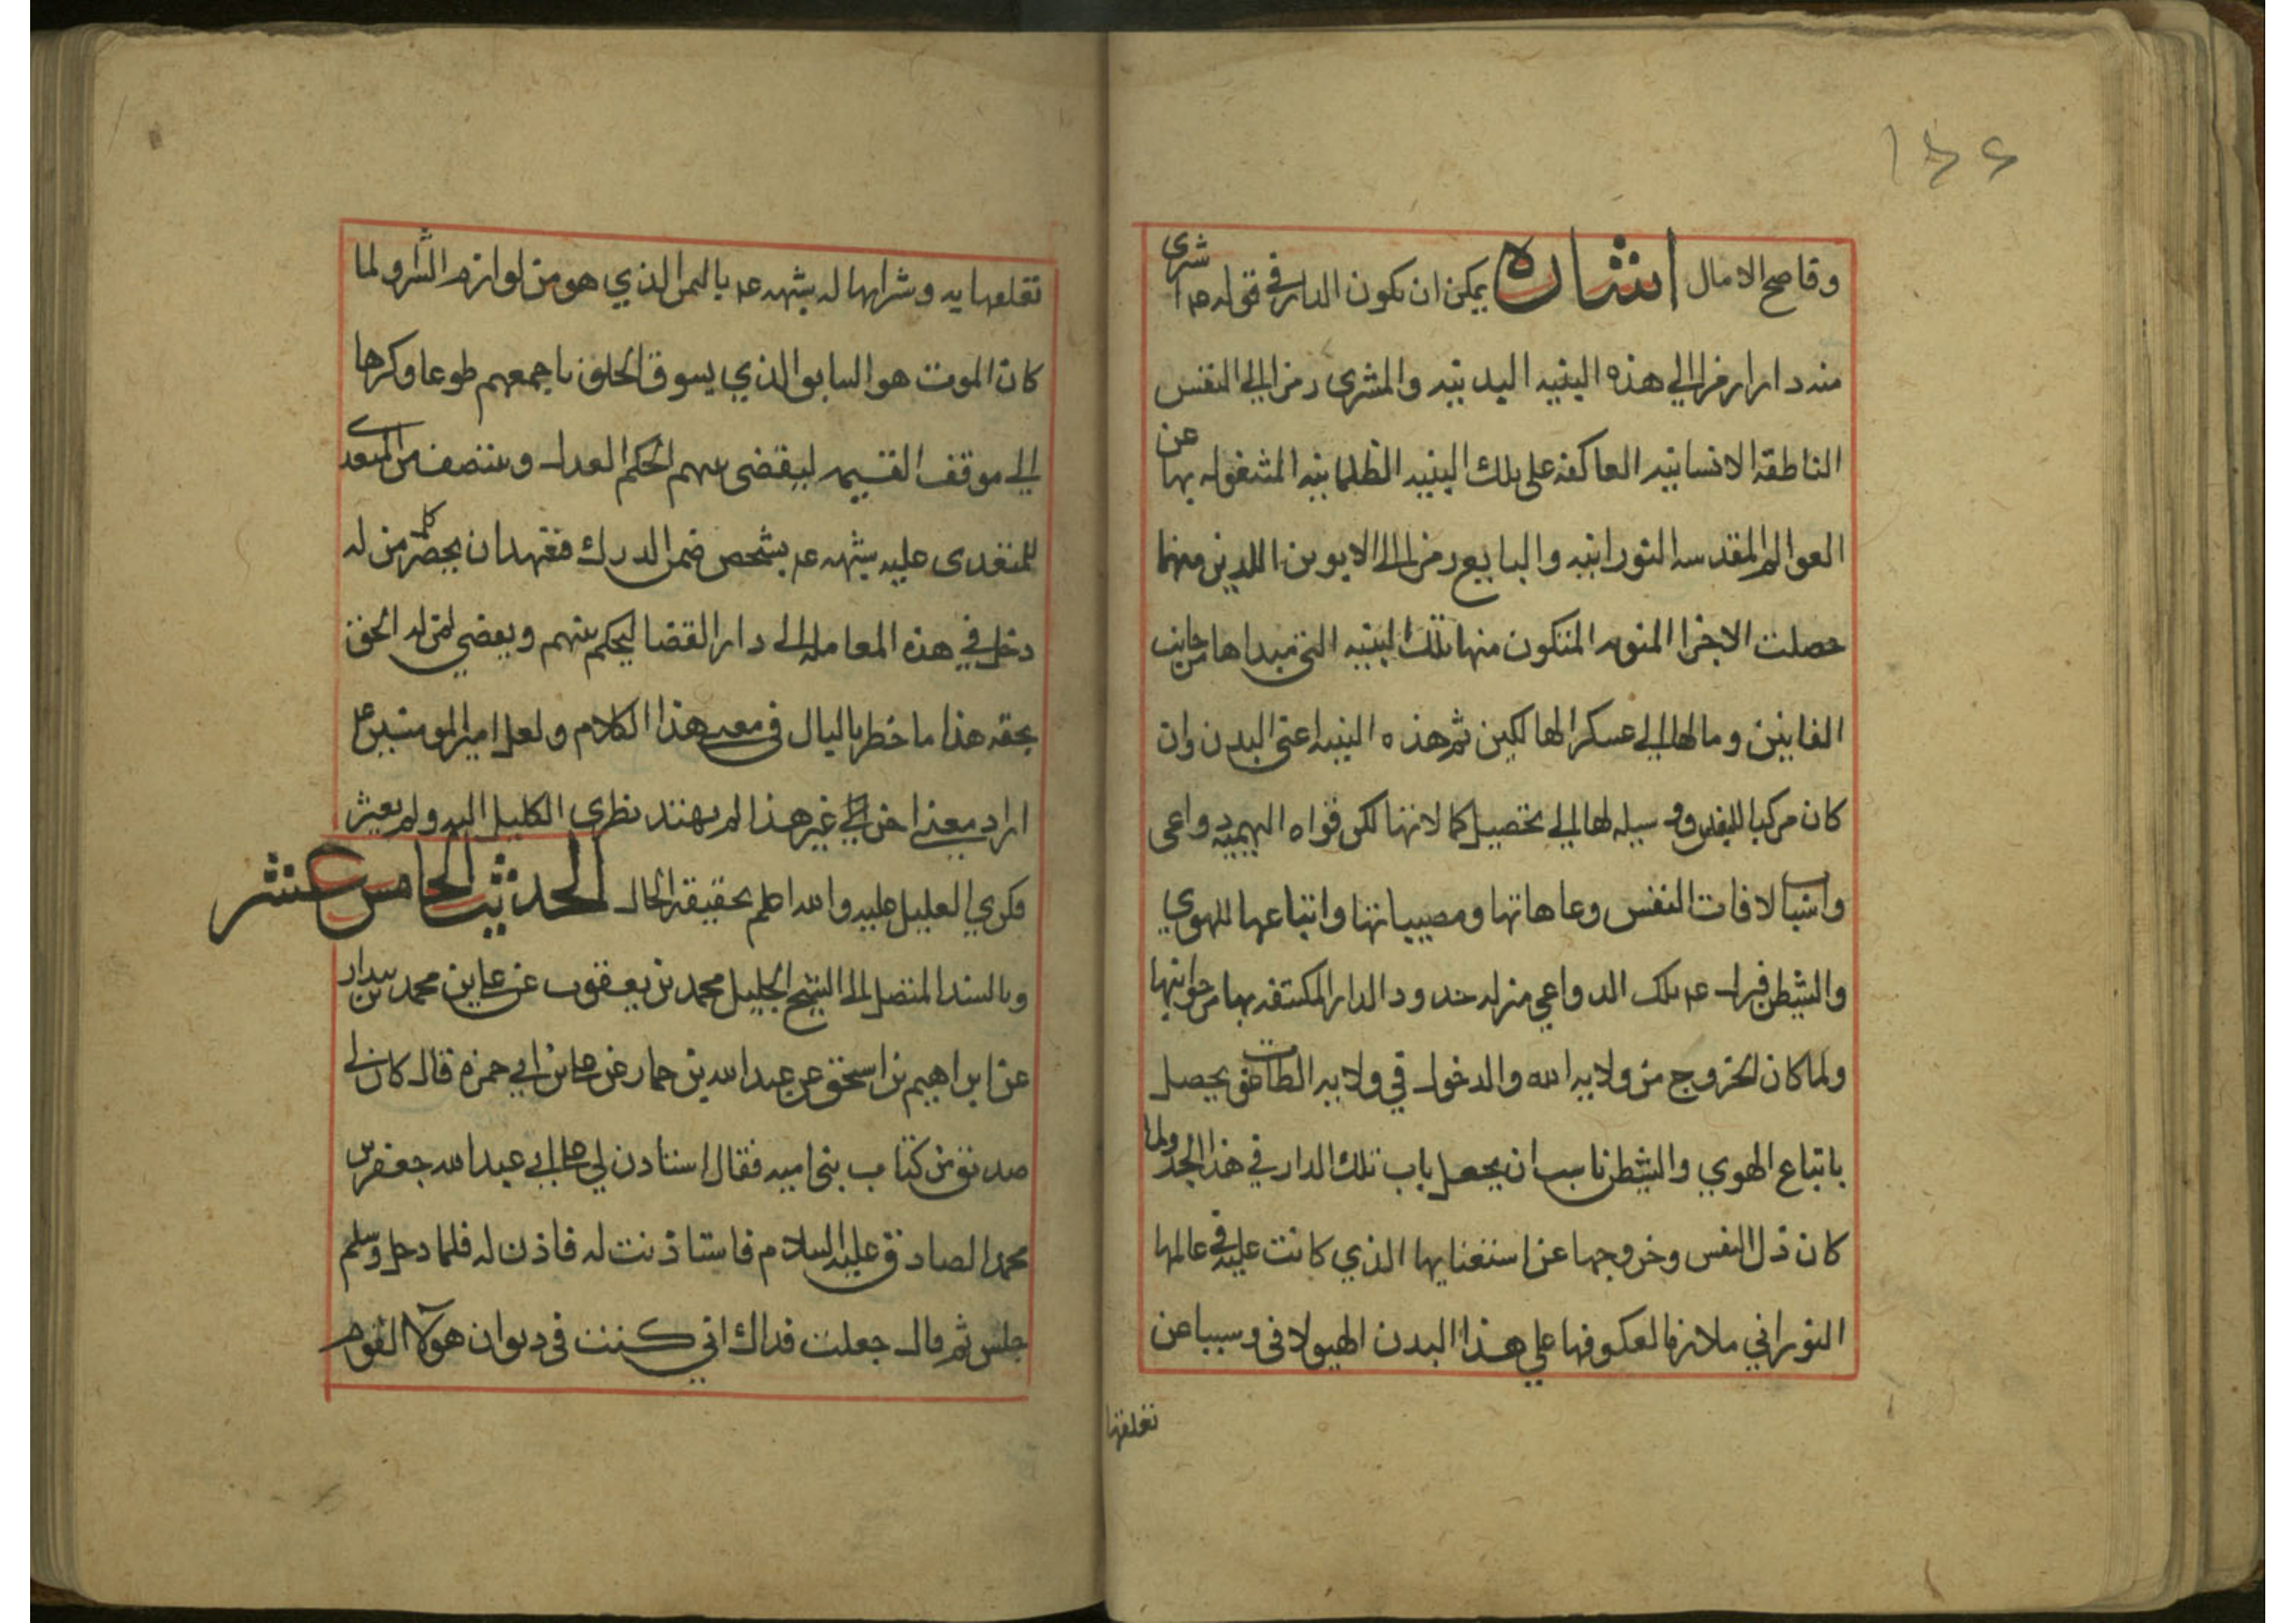 ١٤٤
وقاصح الامال اشاره يمكن ان يكون الدار في قوله عم اشرى
منه دارا رمزا الي هذه البنيه البدنيه والمشترى رمزا الي النفس
الناطقة الانسانيه العاكفة على تلك البنيه الظلمانيه المشغوله بها عن
العوالم المقدسه النورانيه والبايع رمزا الى الابوين اللذين منهما
حصلت الاجزا المنويه المتكون منها تلك البنيه التي مبداها من جانب
الفانين ومالها الي عسكر الهالكين ثم هذه البنيه اعني البدن وان
كان مركبا للنفس ووسيله لها الي تحصيل كمالاتها لكن قواه البهيميه دواعي
واسباب لافات النفس وعاهاتها ومصيباتها واتباعها للهوي
والشيطن فنزل عم تلك الدواعي منزله حدود الدار المكتنفه بها من جوانبها
ولما كان الخروج من ولايه الله والدخول في ولايه الطاغوت يحصل
باتباع الهوي والشيطن ناسب ان يجعل باب تلك الدار في هذا الحد ولما
كان ذل النفس وخروجها عن استغنايها الذي كانت عليه في عالمها
النوراني ملازما لعكوفها علي هذا البدن الهيولاني وسببا عن
تعلقها
تعلقها به وشرايها له شبهه عم بالثمن الذي هو من لوازم الشرا ولما
كان الموت هو السابق الذي يسوق الخلق باجمعهم طوعا وكرها
الي موقف القيمه ليقضي بينهم الحكم العدل وينتصف من المتعدي
للمتعدى عليه شبهه عم بشخص ضمن الدرك فتعهد ان يحضر كل من له
دخل في هذه المعامله الى دار القضا ليحكم بينهم ويقضي لمن له الحق
بحقه هذا ما خطر بالبال في معنى هذا الكلام ولعل امير المومنين عم
اراد معنى اخر غير هذا لم يهتد نظري الكليل اليه ولم يعثر
فكري العليل عليه والله اعلم بحقيقة الحال الحديث الخامس عشر
وبالسند المتصل الى الشيخ الجليل محمد بن يعقوب عن علي بن محمد بن بندار
عن ابراهيم بن اسحق عن عبد الله بن حماد عن علي بن ابي حمزه قال كان لي
صديق من كتاب بني اميه فقال استاذن لي على ابي عبد الله جعفر بن
محمد الصادق عليه السلام فاستاذنت له فاذن له فلما دخل وسلم
جلس ثم قال جعلت فداك اني كنت في ديوان هولآ القوم